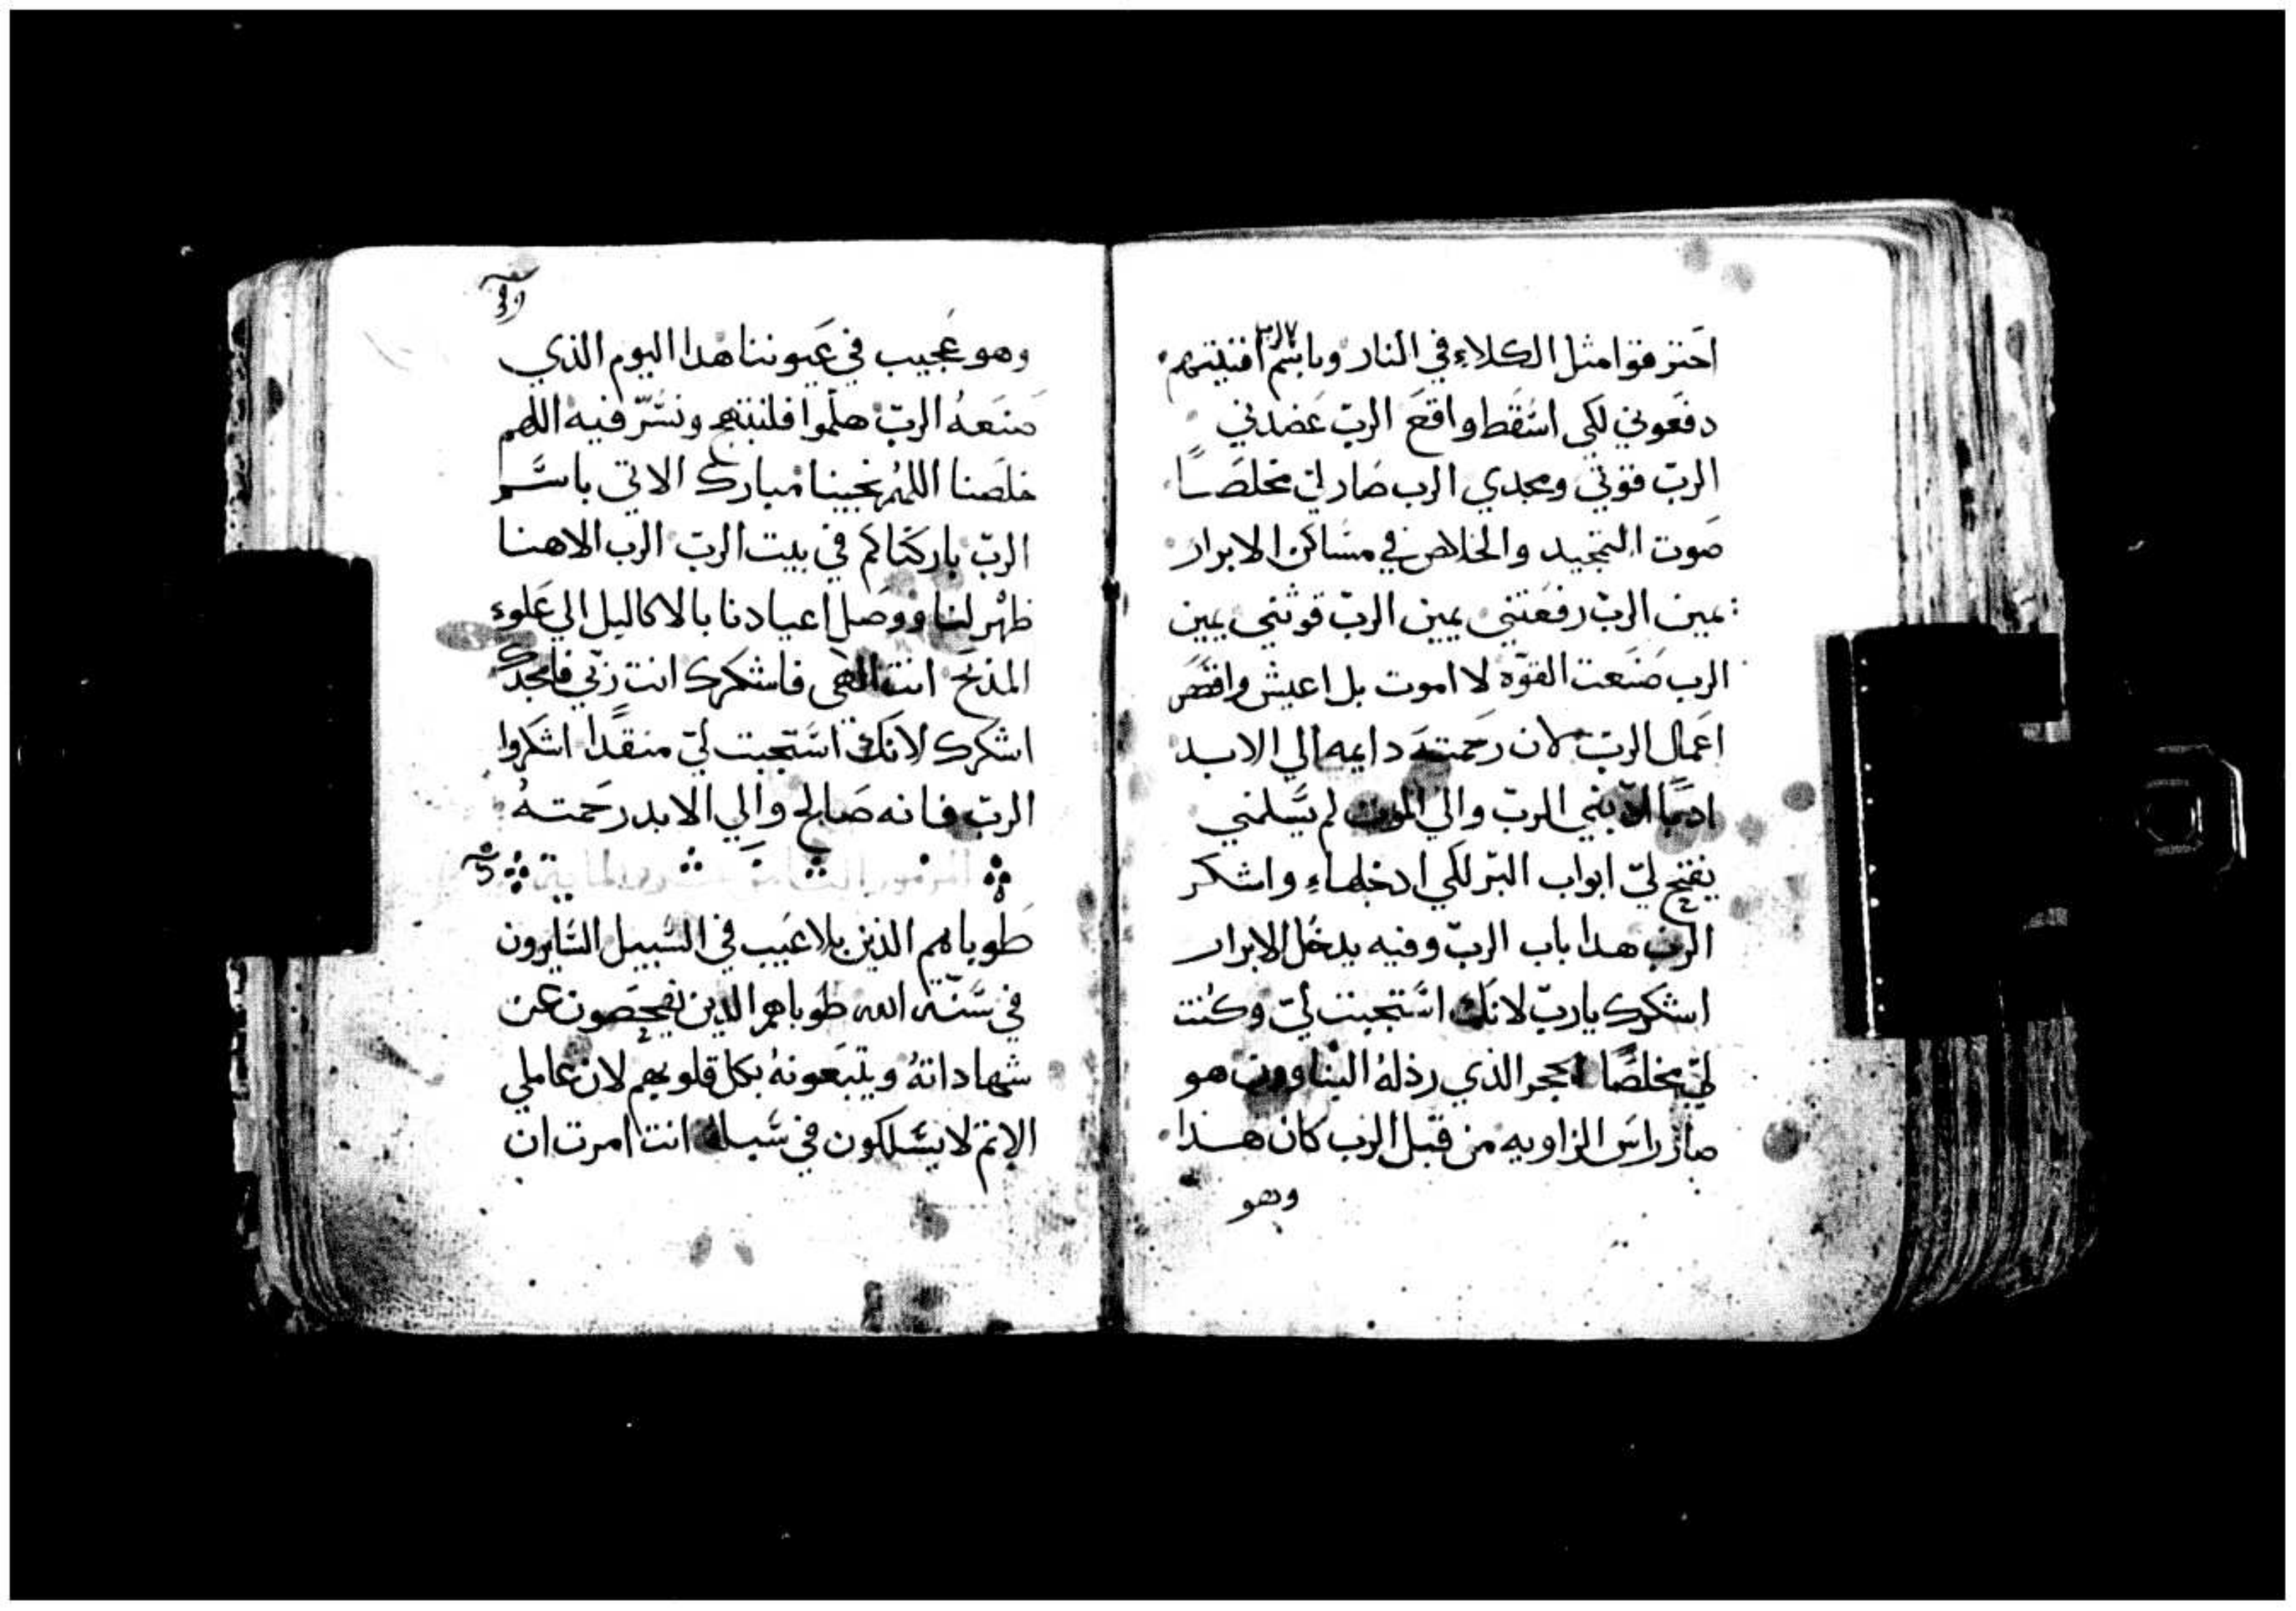 احترقوا مثل الكلاء في النار وباسم الرب افنيتهم
دفعوني لكي اسقط واقع الربّ عضدني
الربّ قوتي ومجدي الرب صار لي مخلصًا
صوت التمجيد والخلاص في مساكن الابرار
يمين الربّ رفعتني يمين الربّ قوتني يمين
الرب صنعت القوّه لا اموت بل اعيش واقص
اعمال الربّ لان رحمته دايمه الي الابد
ادبًا ادّبني الربّ والي الموت لم يسلمني
يفتح ليّ ابواب البرّ لكي ادخلهاء واشكر
الربّ هدا باب الربّ وفيه يدخل الابرار
اشكرك ياربّ لانك استجبت ليّ وكنت
ليّ مخلصًا الحجر الذي رذله البناوون هو
صار راس الزاويه من قبل الرب كان هـدا
وهو
وهو عجيب في عيوننا هدا اليوم الذي
صنعهُ الربّ هلموا فلنبتهج ونسّر فيه اللهم
خلصنا اللهم نجينا مبارك الاتي باسّم
الربّ باركناكم في بيت الربّ الرب الاهنا
ظهر لنا ووصل اعيادنا بالاكاليل الي علوء
المذبح انت الهي فاشكرك انت ربّي فامجدك
اشكرك لانك استجبت ليّ منقدًا اشكروا
الربّ فانه صالح والي الابد رحمتـهُ
المزمور الثامن عشر والمايه
طوباهم الذين بلا عيب في السبيل السايرون
في سنّة الله طوباهم الدين يفحصون عن
شهاداتهُ ويتبعونهُ بكل قلوبهم لان عاملي
الاتم لا يسلكون في سبله انت امرت ان